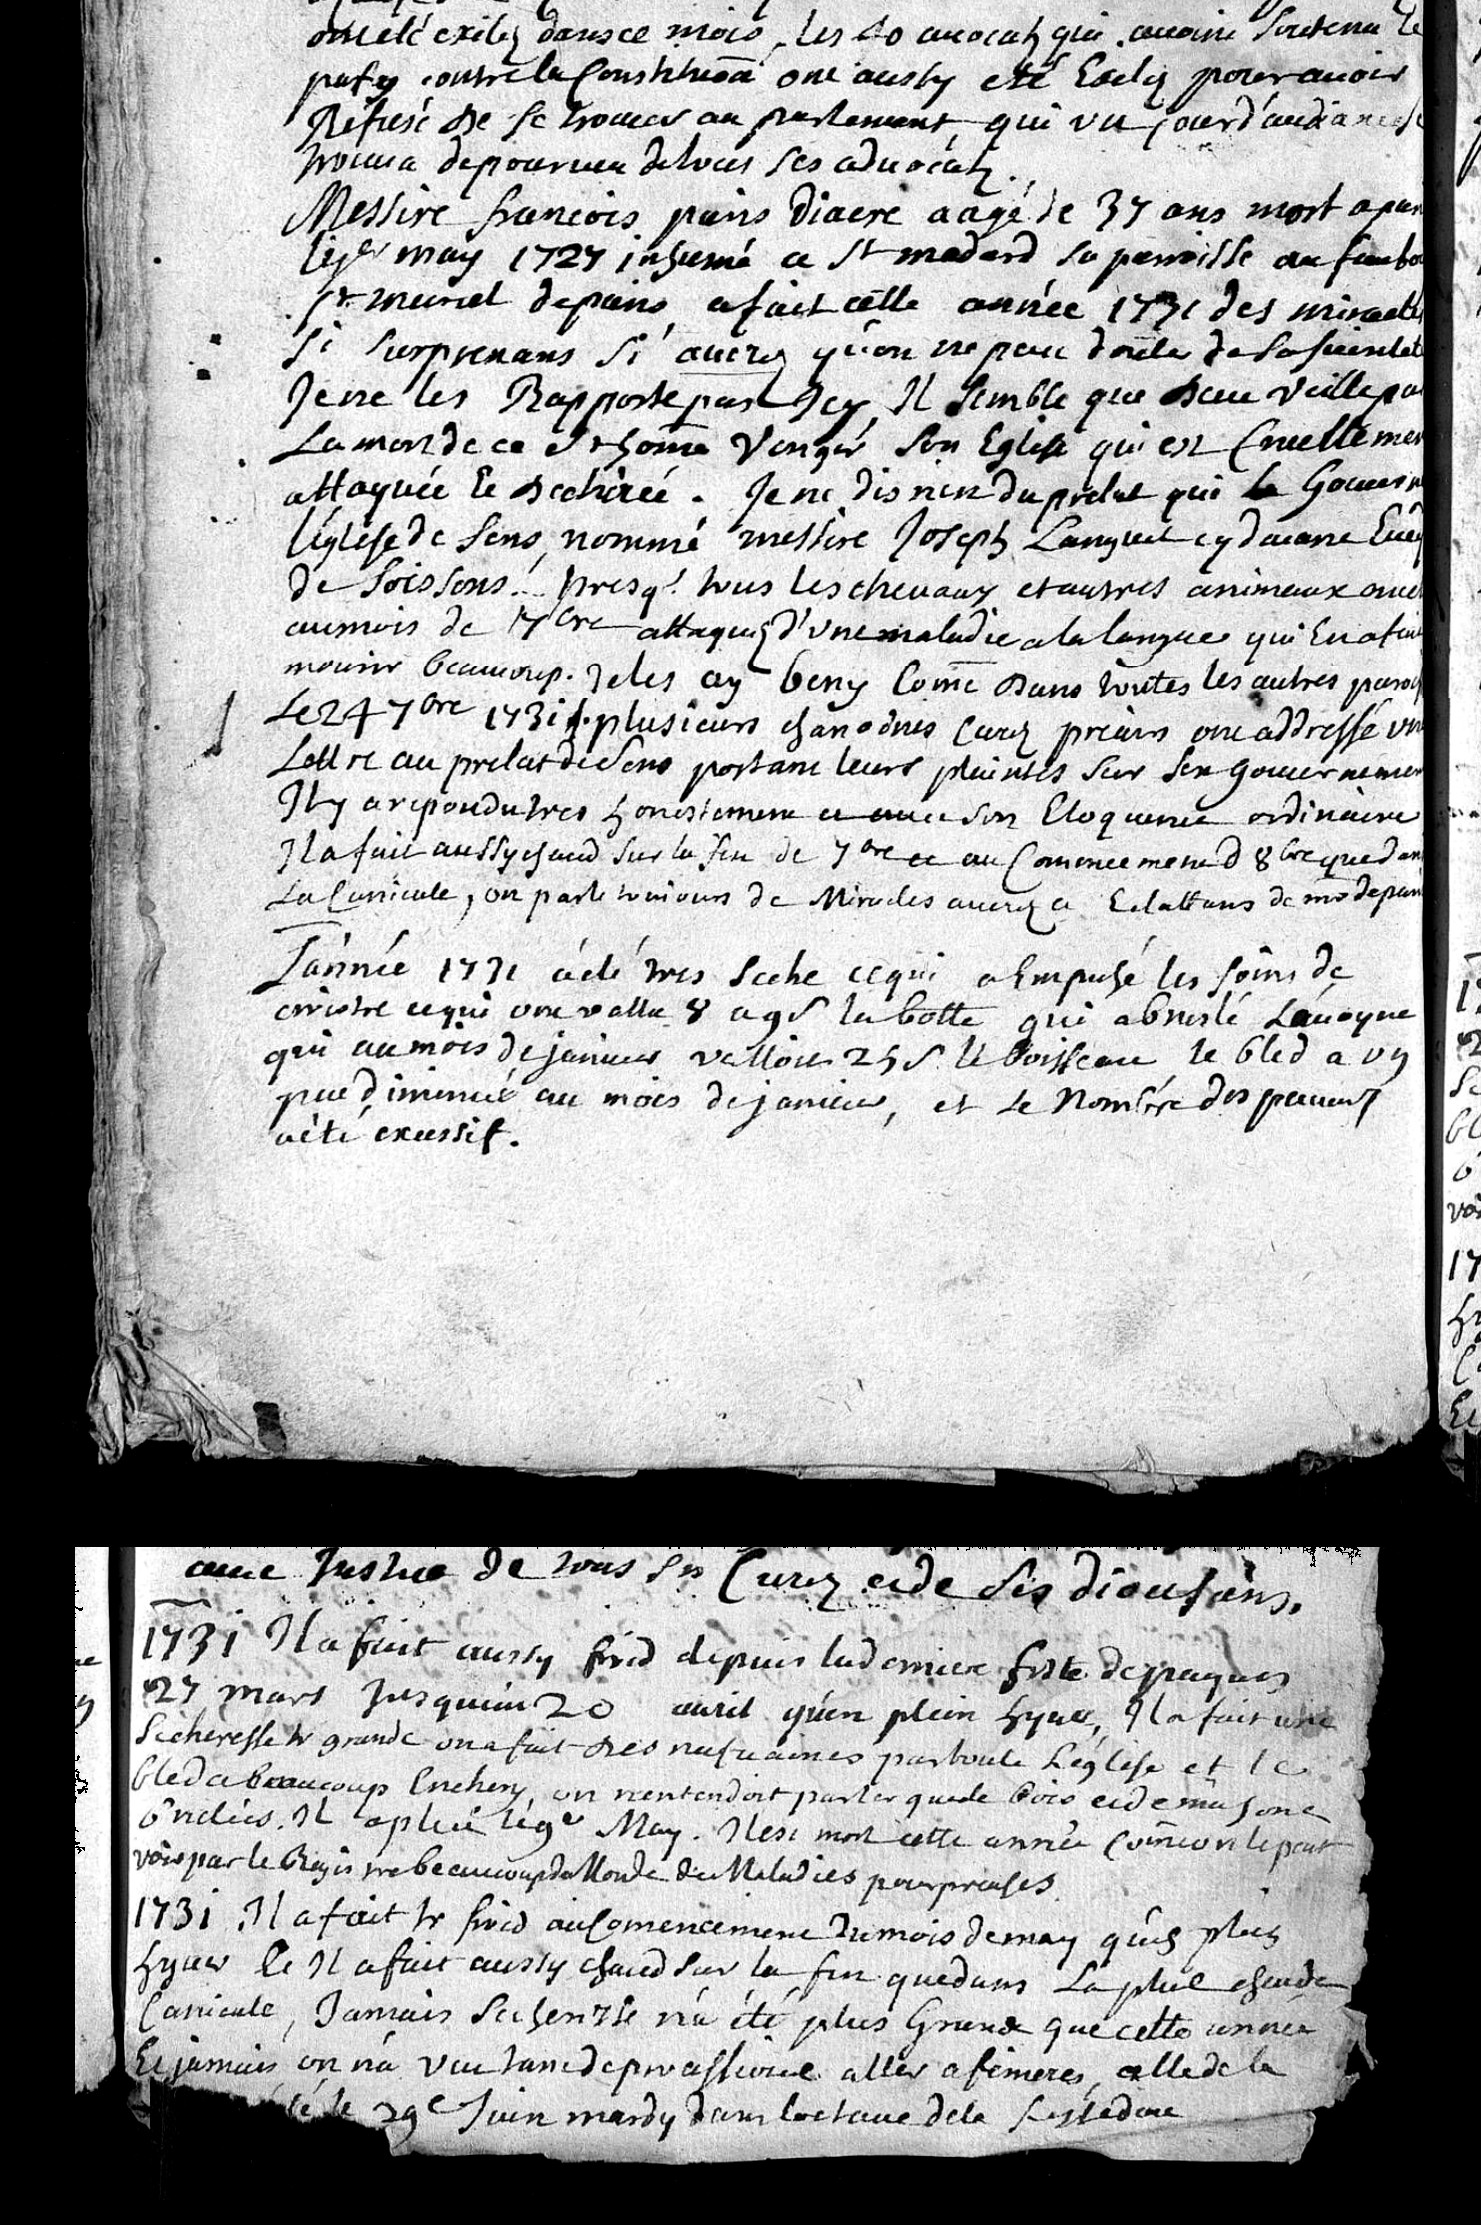 ont eté exilez dans ce mois, les 40 avocatz qui avoint soutenu le
contre la Constituoā ont aussy eté Exilez pour avoir
Refusé de se trouver au parlement, qui un jour d'audiance se
trouva depourveu de tous ses advocatz.
Messire francois paris Diacre aagé de 37 ans mort a pari
le 1er may 1727 inhumé a St medard sa parroisse au faubo
St marcel de paris, a fait cette année 1731 des miracle
si surprenans si averez qu'on ne peut douter de sa
Je ne les Rapporte pas Icy, Il semble que Dieu veille pa
La mort de ce St home Vanger son Eglise qui est Cruellemen
attaquée Et dechirée. Je ne dis rien du prelat qui Gouvern
l'églese de Sens, nommé messire Joseph Languet cy devant Eveq
de Soissons. presq. tous les chevaux et autres animaux ont
au mois de 7bre attaquez d'une maladie a la langue qui En a fait
mourir beaucoup. Je les ay beny Come dans toutes les autres paroi
Le 24 7bre 1731 plusieurs chanoines Curez prieurs ont addressé un
Lettre au prelat de Sens portant leurs plaintes sur son Gouvernemen
Il y a repondu tres honestement et avec son Eloquence ordinaire
Il a fait aussy chaud sur la fin de 7bre et au Comencement d 8bre que dan
La Canicule, on parle toujours de Miracles averez et Eclattans de mr de pari
L'année 1731 a été tres seche ce qui a Empeché les foins de
croistre ce qui ont vallu 8 a 9 s la botte qui a Lavoyne
qui au mois de janvier valloit 25 s. le boisseau le bled a un
peu diminué au mois de janvier, et Le Nombre des pauvres
a été excessif.
avec Justice de tous ses Curez et de ses diocesains.
1731 Il a fait aussy froid depuis la derniere feste de paques
27 mars Jusqu'au 20 avril qu'en plein hyver, Il a fait une
Secheresse tr grande on a fait des neufvaines par toute L'églese et le
bled a beaucoup Enchery, on n'entendoit parler que de bois et de maisons
brulées. Il a plu le 9e May. Il est mort cette année Come on le peut
voir par le Registre beaucoup de Monde de Maladies pourpreuses
1731 Il a fait tr froid au Comencement du mois de may qu'en plein
hyver Et Il a fait aussy chaud sur la fin que dans La plus chaude
Canicule, Jamais secheresse n'a été plus Grande que cette année
Et jamais on n'a veu tant de processions aller a celle de la
le 29e Juin mardy dans l'octave de la feste